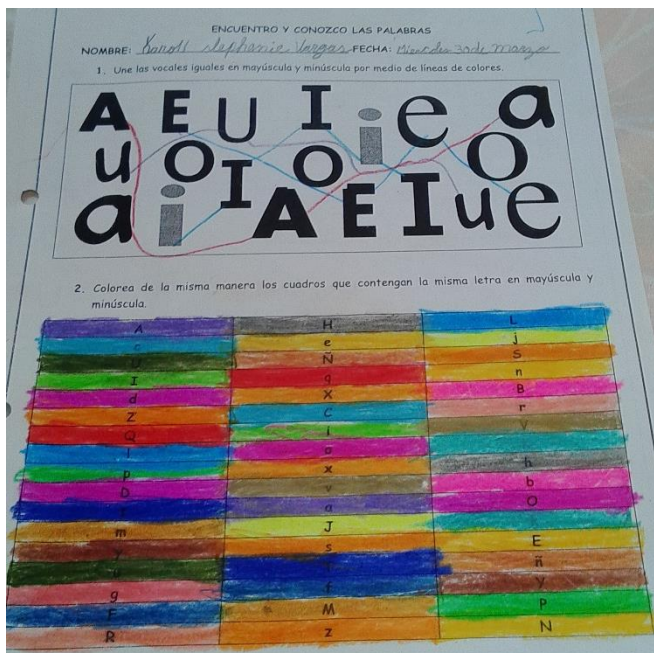 ENCUENTRO Y CONOZCO LAS PALABRAS
NOMBRE: Stephanie Vargas FECHA: Miercoles 30 de Marzo
1. Une las vocales iguales en mayúscula y minúscula por medio de líneas de colores.
A E U I i e a
u O I O i e
a i A E I u e
2. Colorea de la misma manera los cuadros que contengan la misma letra en mayúscula y
minúscula.
A H L
c e j
U Ñ S
I q n
d X B
Z C r
Q i V
l o
p x h
D v b
a O
m J
y s E
u ñ
g f y
F M P
R z N